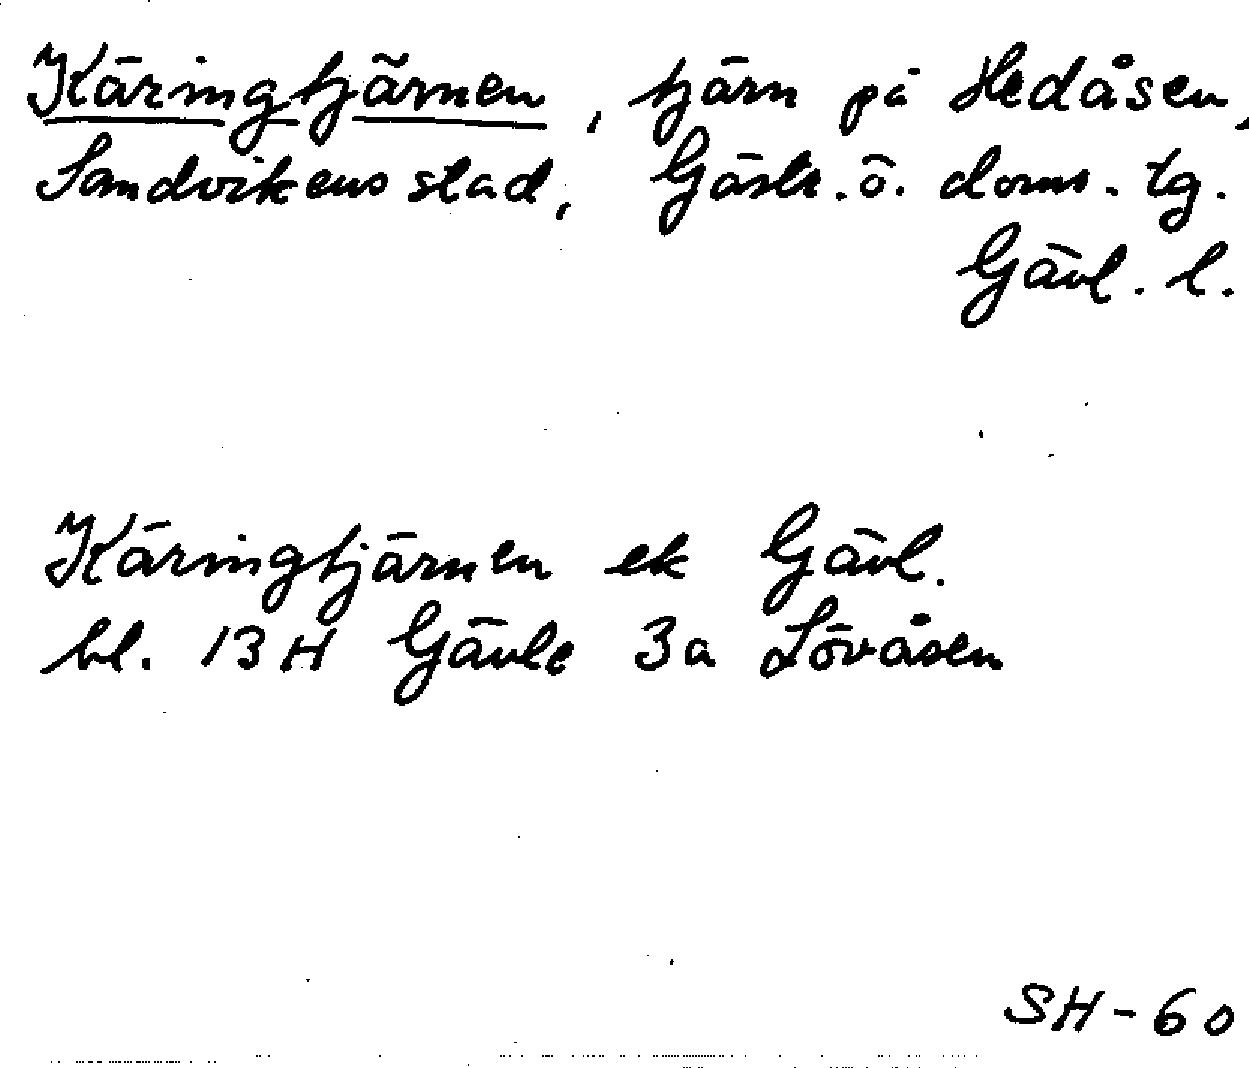 Käringtjärnen, tjärn på Hedåsen,
Sandvikens stad, Gästr. ö. doms. tg.
Gävl. l.
Käringtjärnen ek Gävl.
bl. 13H Gävle 3a Lövåsen
SH-60